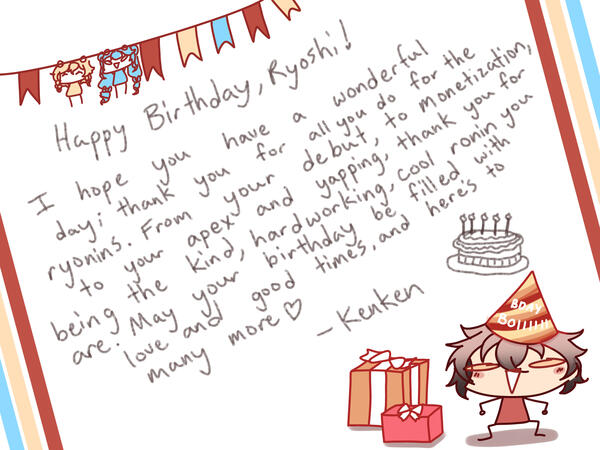 Happy Birthday, Ryoshi!
I hope you have a wonderful
day; thank you for all you do for the
ryonins. From your debut, to monetization,
to your apex and yapping, thank you for
being the kind, hardworking, cool ronin you
are. May your birthday be filled with
love and good times, and here's to
many more♡
- Kenken
BDAY
BOIIIII